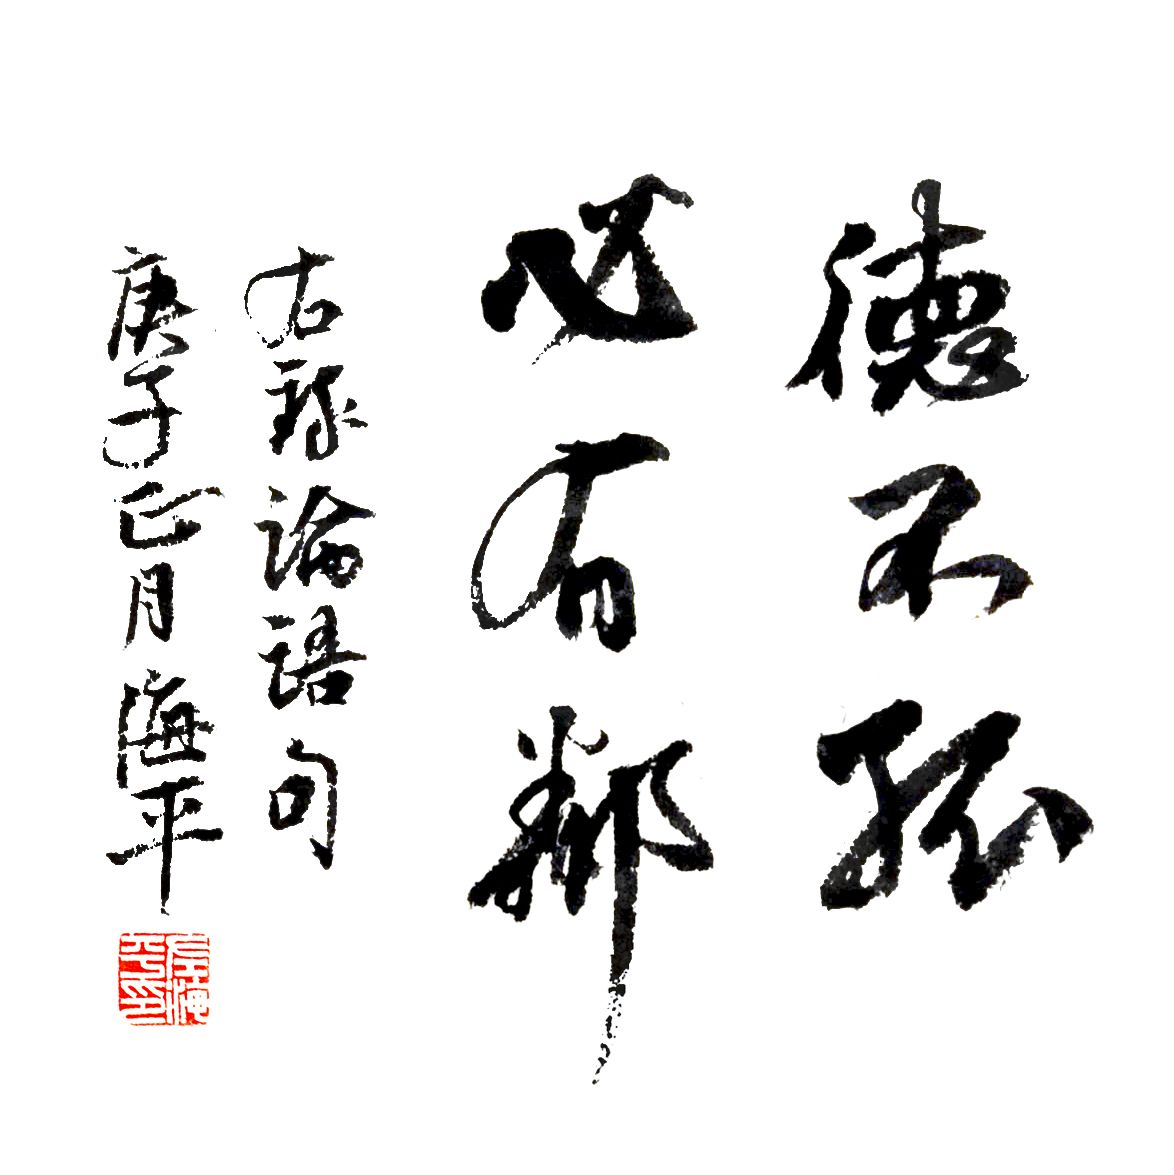 德不孤
必有鄰
右錄論語句
庚子正月海平
左海平印